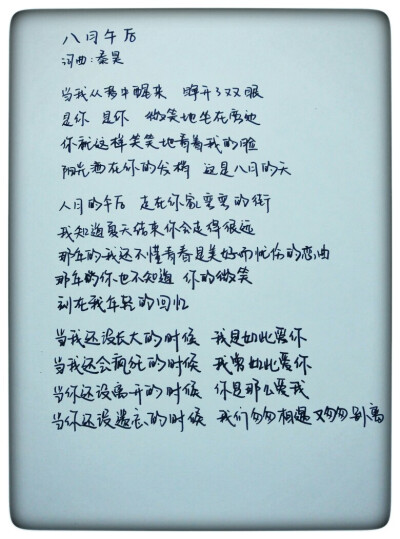 八月午后
词曲:秦昊
当我从梦中醒来 睁开了双眼
是你 是你 微笑地坐在窗边
你就这样笑笑地看着我的脸
阳光洒在你的发梢 这是八月的天
八月的午后 走在你家弯弯的街
我知道夏天结束你会走得很远
那年的我还不懂青春是美好而忧伤的恋曲
那年的你也不知道 你的微笑
刻在我年轻的回忆
当我还没长大的时候 我是如此爱你
当我还会疯狂的时候 我曾如此爱你
当你还没离开的时候 你是那么爱我
当你还没遗忘的时候 我们匆匆相遇又匆匆别离